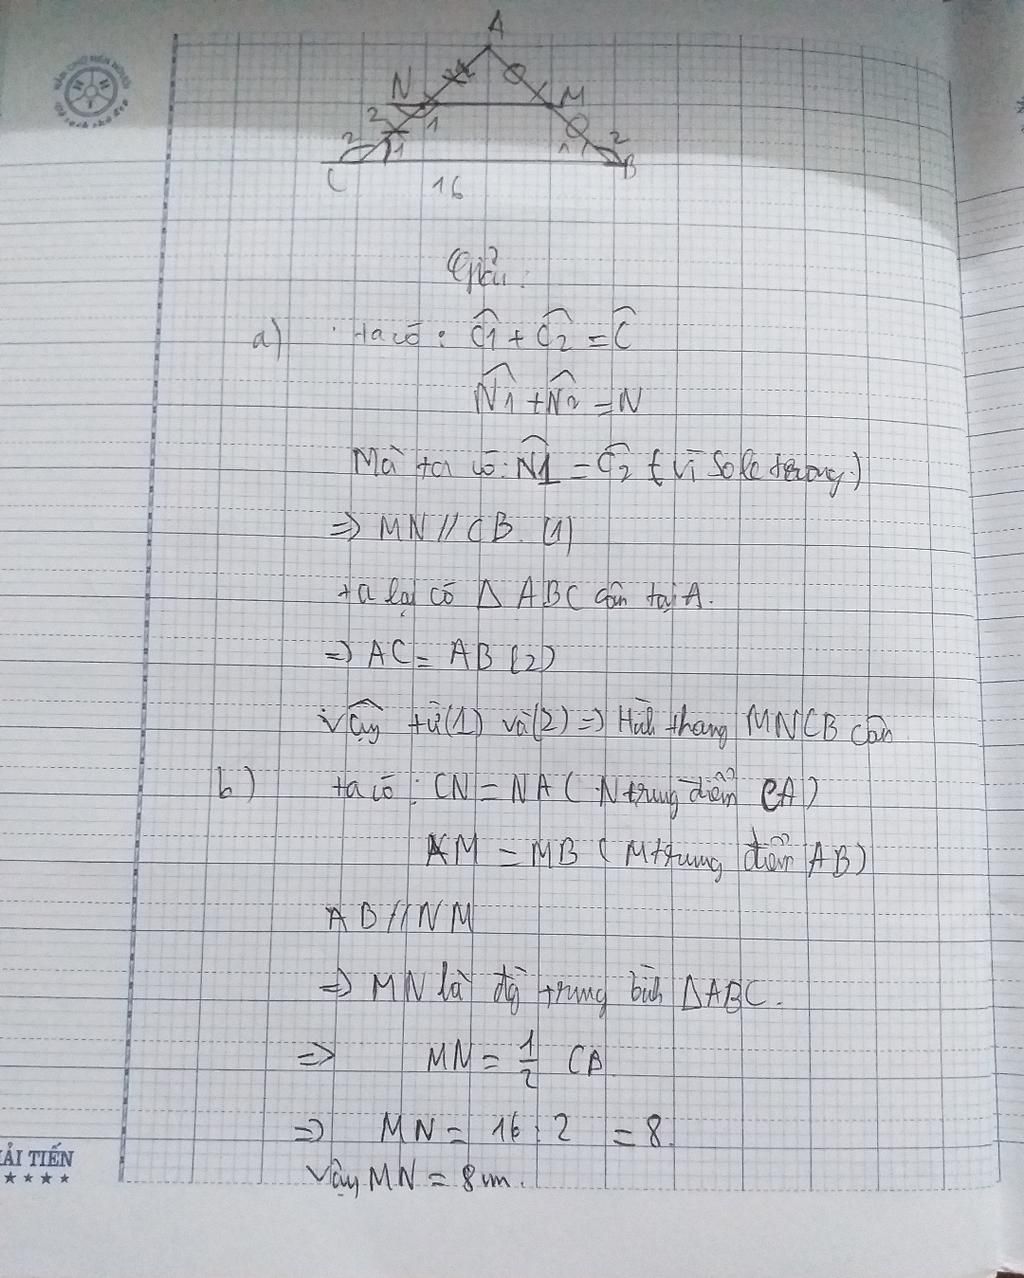 A
N
M
2
1
2
1
1
2
C
16
B
Giải:
a) ta có: C1 + C2 = C
N1 + N2 = N
Mà ta có: N1 = C2 (vì so le trong)
=> MN // CB (1)
ta lại có Δ ABC cân tại A.
=> AC = AB (2)
Vậy từ (1) và (2) => Hình thang MNCB cân
b) ta có: CN = NA (N trung điểm CA)
AM = MB (M trung điểm AB)
AB // NM
=> MN là đg trung bình ΔABC.
=> MN = 1/2 CB
=> MN = 16 : 2 = 8.
Vậy MN = 8 cm.
ẢI TIẾN
★★★★